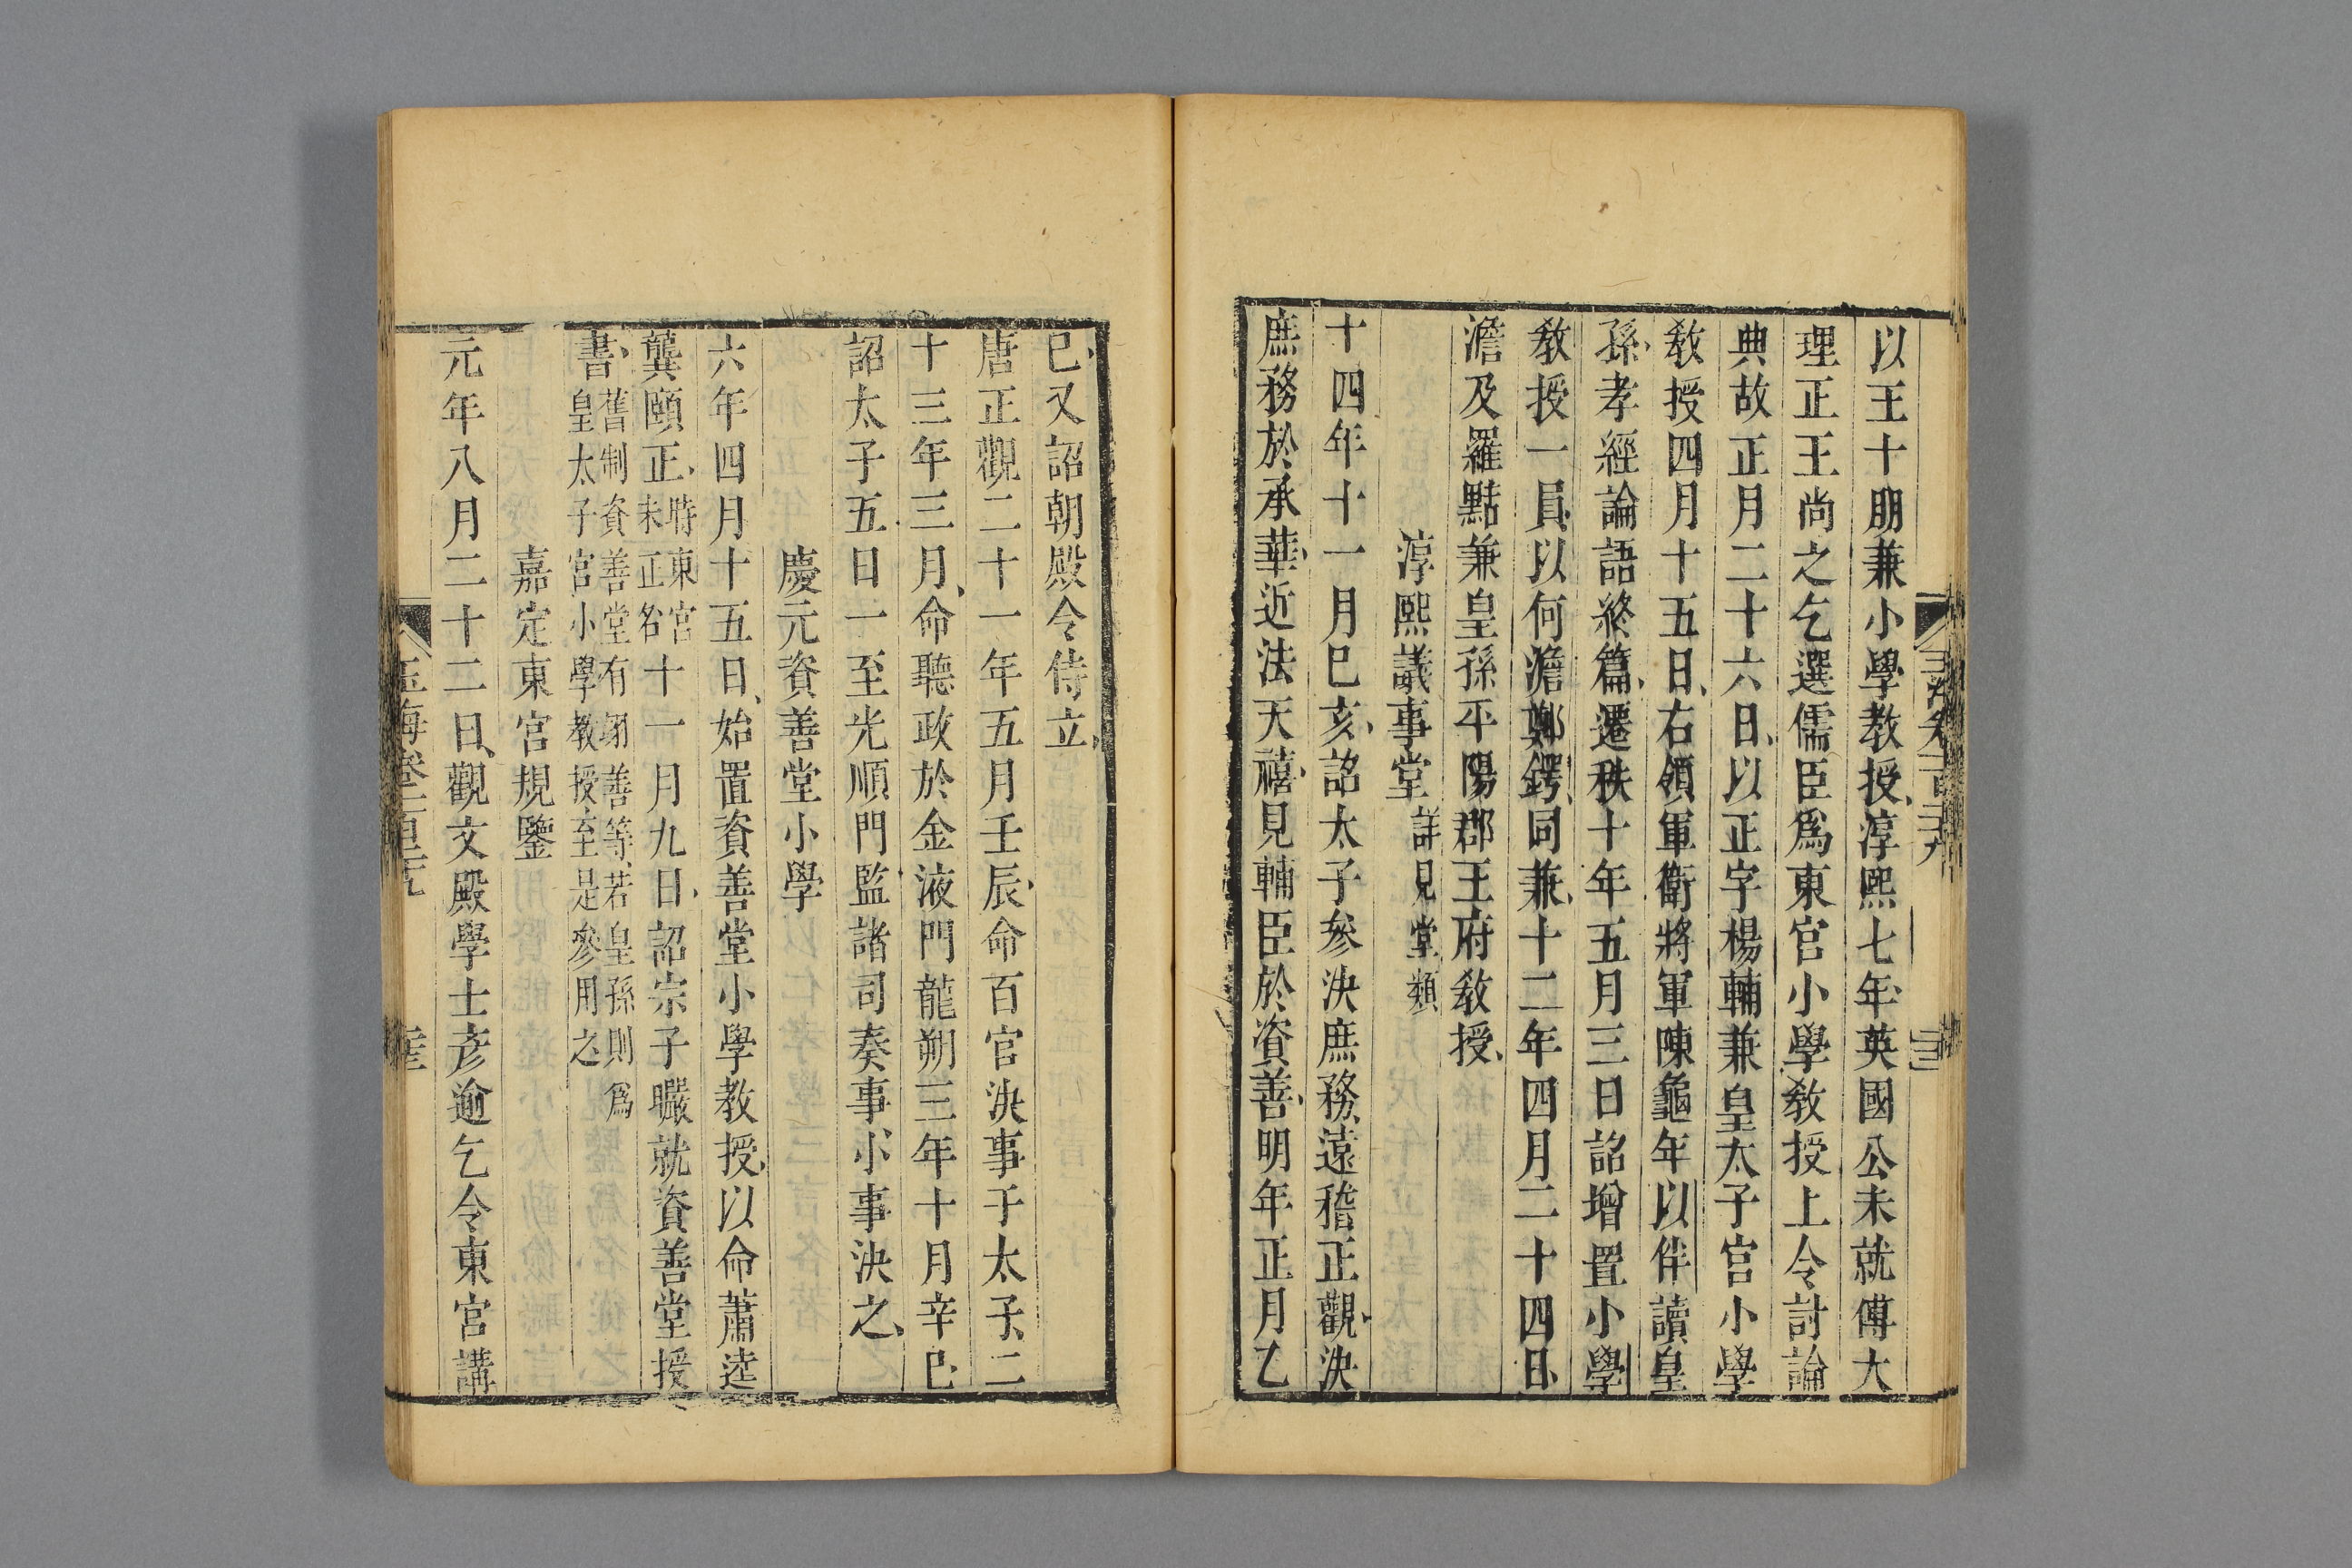 以王十朋兼小學教授淳熙七年英國公未就傅大
理正王尚之乞選儒臣爲東宫小學教授上令討論
典故正月二十六日以正字楊輔兼皇太子宫小學
教授四月十五日右領軍衛將軍陳龜年以伴讀皇
孫孝經論語終篇遷秩十年五月三日詔增置小學
教授一員以何澹鄭鍔同兼十二年四月二十四日
澹及羅點兼皇孫平陽郡王府教授
淳熙議事堂詳見堂類
十四年十一月巳亥詔太子參決庶務遠稽正觀決
庶務於承華近法天禧見輔臣於資善明年正月乙
巳又詔朝殿令侍立
唐正觀二十一年五月壬辰命百官決事于太子二
十三年三月命聽政於金液門龍朔三年十月辛巳
詔太子五日一至光順門監諸司奏事小事決之
慶元資善堂小學
六年四月十五日始置資善堂小學教授以命蕭逵
龔頤正時東宫未正名十一月九日詔宗子曮就資善堂授
書舊制資善堂有翊善等若皇孫則爲皇太子宫小學教授至是參用之
嘉定東宫規鑒
元年八月二十二日觀文殿學士彥逾乞令東宫講
玉海卷一百二十九